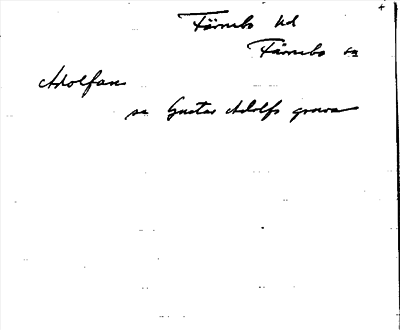 Färnebo hd
Färnebo sn
Adolfan
se Gustav Adolfs gruva